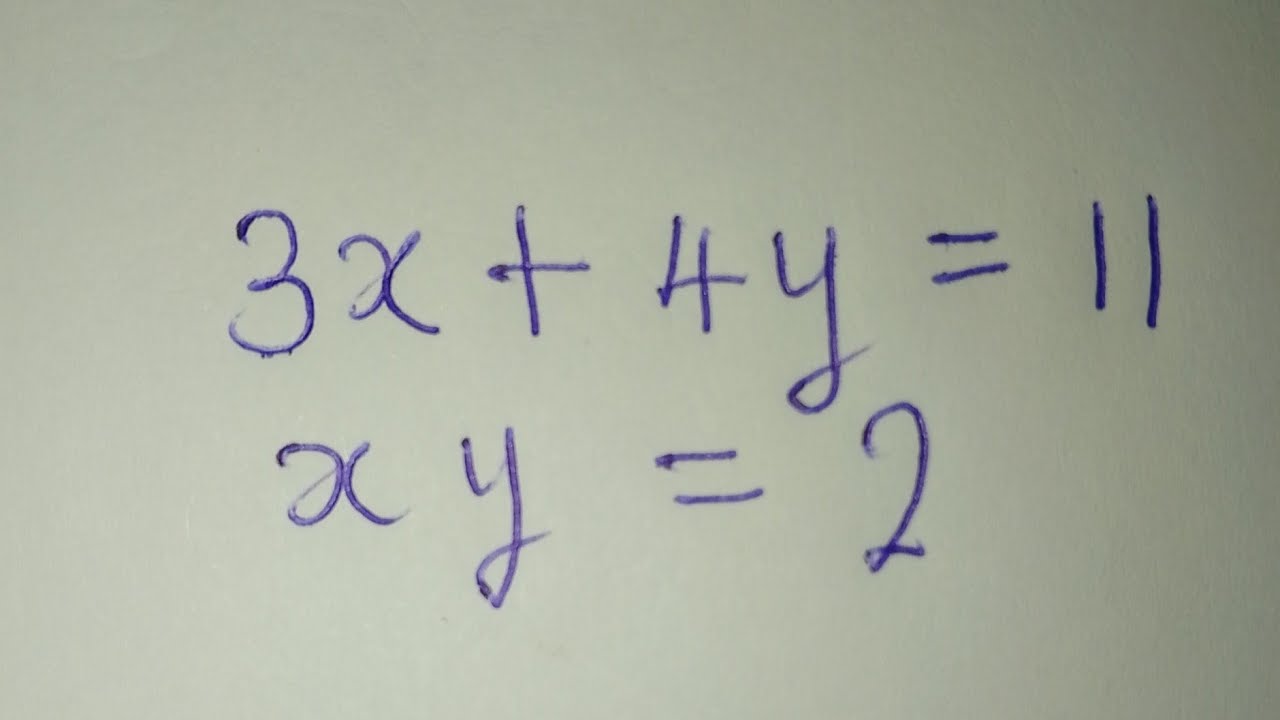 3x + 4y = 11
xy = 2